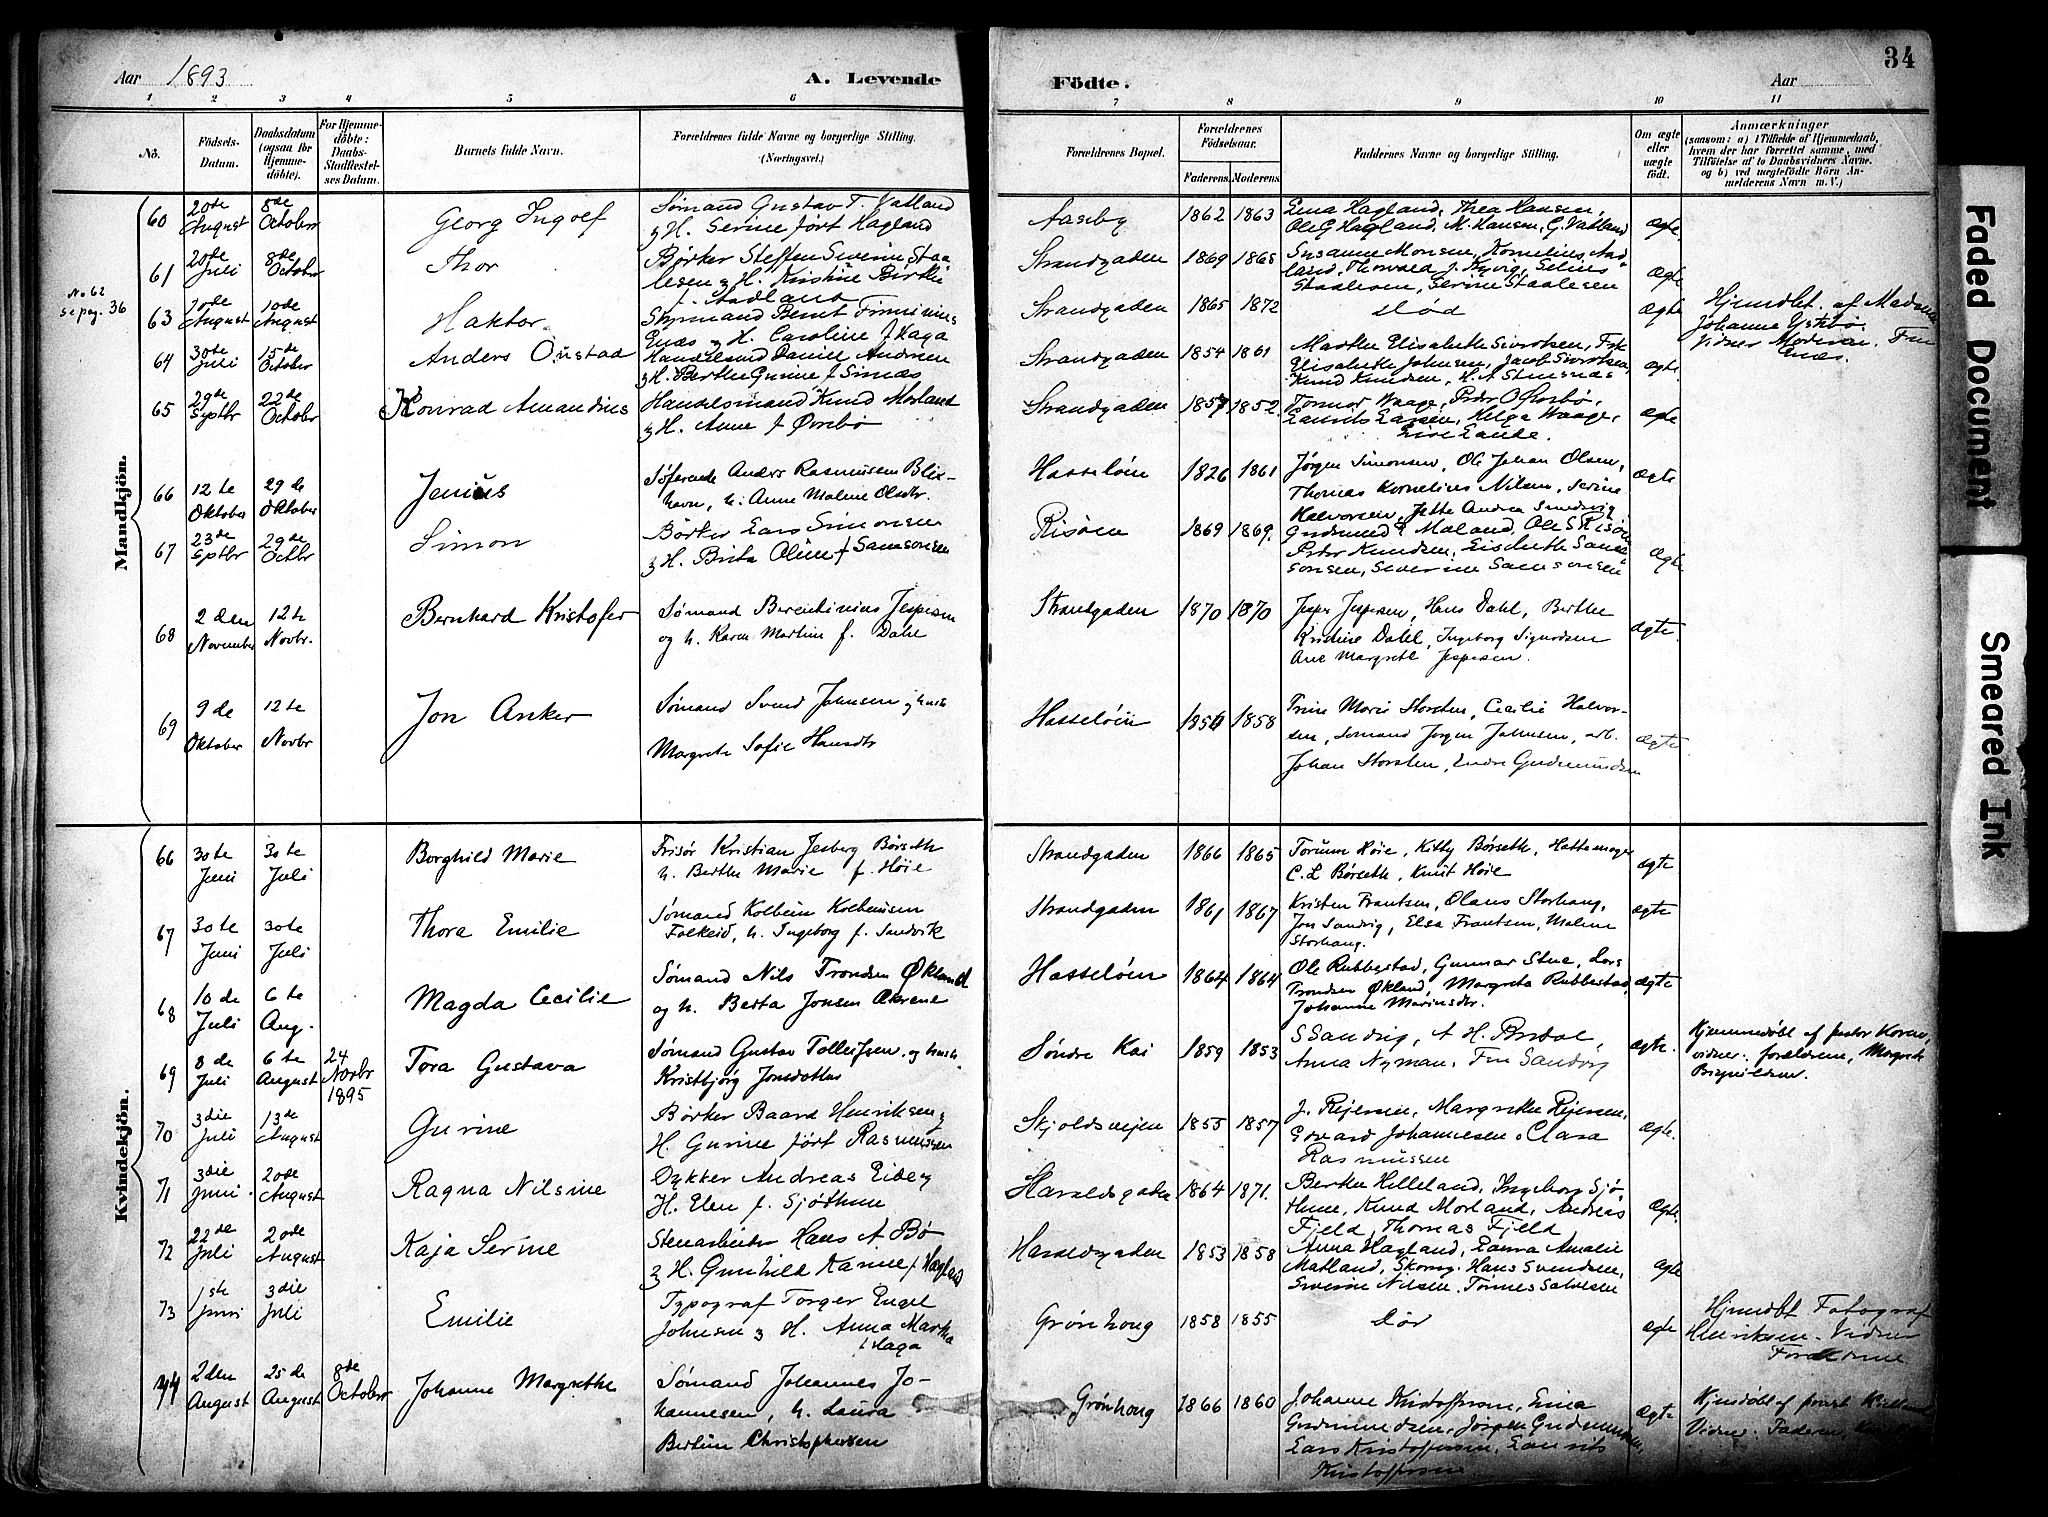 34
Aar 1893
A. Levende
Födte.
Aar
1 2 3 4 5 6 7 8 9 10 11
Nö.
Födsels-Datum.
Daabsdatum (ogsaa för Hjemme-döbte).
For Hjemme-döbte: Daabs-Stadfæstel-ses Datum.
Barnets fulde Navn.
Forældrenes fulde Navne og borgerlige Stilling. (Næringsvei.)
Forældrenes Bopæl.
Forældrenes Födselsaar.
Faderens. Moderens.
Faddernes Navne og borgerlige Stilling.
Om ægte eller uægte födt.
Anmærkninger
(saasom: a) i Tilfælde af Hjemmedaab, hvem der har forrettet samme, med Tilföielse af to Daabsvidners Navne. og b) ved uægtefödte Börn An-melderens Navn m. V.)
Mandkjön.
60 20de August 8de October Georg Ingolf Sømand Gustav T. Vatland & H. Serine født Hagland Aasby 1862 1863 Lina Hagland, Thea Hansen, Ole G Hagland, M. Hansen, G. Vatland ægte.
61 20de Juli 8de October Thor Børker Steffen Severin Staalesen & H. Kristine Birthe f. Aadland Strandgaden 1869 1868 Susanne Monsen, Kornelius Aadland, Staalesen, Serine Staalesen ægte
No 62 se pag. 36
63 10de August 10de August Haktor Styrmand Bernt Enæs & H. Caroline f Haga Strandgaden 1865 1872 død ægte Hjemdbt. af Madam Johanne Vidner Moderen. Fru Enæs.
64 30te Juli 15de October Anders Onstad Handelsmd Daniel Andersen & H. Berthe Gurine f Simæs Strandgaden 1854 1861 Marthe Elisabeth Sivertsen, Elisabeth Johnsen, Jacob Sivertsen, Knud Knudsen, H. A Stensnæs ægte.
65 29de Septbr 22de October Konrad Amandius Handelsmand Knud Morland & H. Anne f Øvrebø Strandgaden 1857 1852. Tormod Waage, Peder Laurits Larsen, Helga Waage, ægte
66 12te Oktober 29de Oktober Jenius Søfarende Anders Rasmussen Blixhavn, h. Anne Malene Olsdtr. Hasseløen 1826 1861 Jørgen Simonsen, Ole Johan Olsen, Thomas Kornelius Nilsen, Serine Halvorsen, Jette Andrea Sundvig ægte
67 23de Septbr 29de Octbr Simon Børker Lars Simonsen & H. Brita Oline f Samsonsen Risøen 1869 1869. Gudmund Maland, Ole S Risøen Peder Knudsen, Elisabeth Samsonsen, Severine Samsonsen ægte
68 2den November 12te Novbr. Bernhard Kristofer Sømand Berentinius Jespersen og h. Karen Martine f. Dahl Strandgaden 1870 1870 Jesper Jespersen, Hans Dahl, Berthe Kristine Dahl, Ingeborg Sigurdsen Ane Margrete Jespersen. ægte.
69 9de Oktober 12te Novbr Jon Anker Sømand Svend Johnsen og hust Margrete Sofie Hansdtr Hasseløen 1856 1858 Trine Marie Storsten, Cecilie Halvorsen, Sømand Jørgen Johnsen, arb. Johan Storsten, Endre Gudmundsen ægte
Kvindekjön.
66 30te Juni 30te Juli Borghild Marie Frisør Kristian Jesberg Børseth h. Berthe Marie f. Høie Strandgaden 1866 1865 Torunn Høie, Kitty Børseth, Hattemager C. L Børseth, Knut Høie ægte
67 30te Juni 30te Juli Thora Emilie Sømand Kolbein Kolbeinsen Falkeid, h. Ingeborg f. Sandvik Strandgaden 1861 1867 Kristen Frantsen, Olaus Storhaug, Jon Sandvig, Elsa Frantsen, Malene Storhaug. ægte
68 10de Juli 6te Aug. Magda Cecilie Sømand Nils Trondsen Økland og h. Berta Jonsen Økrene Hasseløen 1864 1864 Ole Rubbestad, Gunnar Stue, Lars Trondsen Økland, Margreta Rubbestad, Johanne Marinsdtr. ægte
69 8de Juli 6te August 24 Novbr 1895 Tora Gustava Sømand Gustav Tollefsen og hust Kristbjørg Jonsdotter Søndre Kai 1859 1853 S Sandvig, A H. Bredal, Anna Nyman, Fru Sandvig ægte. Hjemmedøbt af pastor Horne, vidner: forældrene, Margrete
70 3die Juli 13de August Gurine Børker Baard Henriksen & H. Gurine født Rasmussen Skjoldsveien 1855 1857 J. Reiersen, Margrethe Reiersen, Edvard Johannesen, Clara Rasmussen ægte.
71 3die Juni 20de August Ragna Nilsine Dykker Andreas Eide & H. Elen f. Sjøthun Haraldsgaden 1864 1871. Berthe Helleland, Ingeborg Sjøthun, Knud Morland, Andreas Fjeld, Thomas Fjeld ægte.
72 22de Juli 20de August Kaja Serine Stenarbeider Hans A. Bø & H. Gunhild Karine f Hagland Haraldsgaden 1853 1858 Anna Hagland, Laura Amalie Matland, Skomg. Hans Svendsen, Severin Nilsen, Tønnes Salvesen ægte
73 1ste Juni 3die Juli Emilie Typograf Torger Engel Johnsen & H. Anna Martha f Haga Grønhoug 1858 1855 dør ægte Hjemdbt Fotograf Henriksen - Vidner Forældrene
74 2den August 25de August 8de October Johanne Margrethe Sømand Johannes Johannesen, h. Laura Bertine Christophersen Grønhoug 1866 1860 Johanne Kristoffersen, Lina Gudmundsen, Jørgen Gudmundsen, Lars Kristoffersen, Laurits Kristoffersen ægte Hjemdøbt af Vidner: Faderen,
Faded Document
Smeared Ink